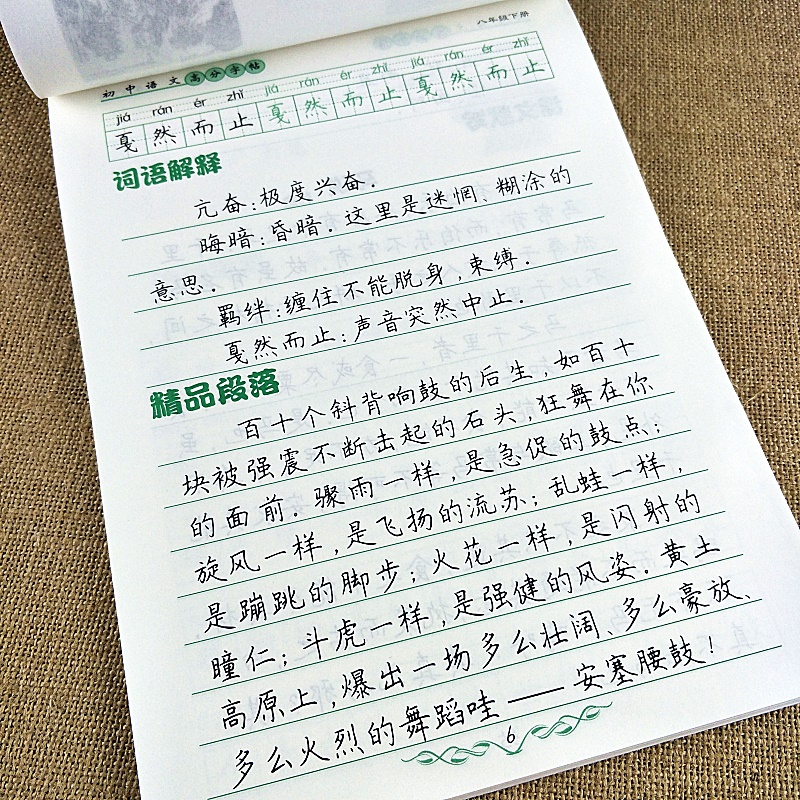 八年级下册
初中语文高分字帖
jiá rán ér zhǐ jiá rán ér zhǐ jiá rán ér zhǐ
戛然而止戛然而止戛然而止
词语解释
亢奋:极度兴奋.
晦暗:昏暗.这里是迷惘、糊涂的
意思.
羁绊:缠住不能脱身,束缚.
戛然而止:声音突然中止.
精品段落
百十个斜背响鼓的后生,如百十
块被强震不断击起的石头,狂舞在你
的面前.骤雨一样,是急促的鼓点;
旋风一样,是飞扬的流苏;乱蛙一样,
是蹦跳的脚步;火花一样,是闪射的
瞳仁;斗虎一样,是强健的风姿.黄土
高原上,爆出一场多么壮阔、多么豪放、
多么火烈的舞蹈哇——安塞腰鼓!
6